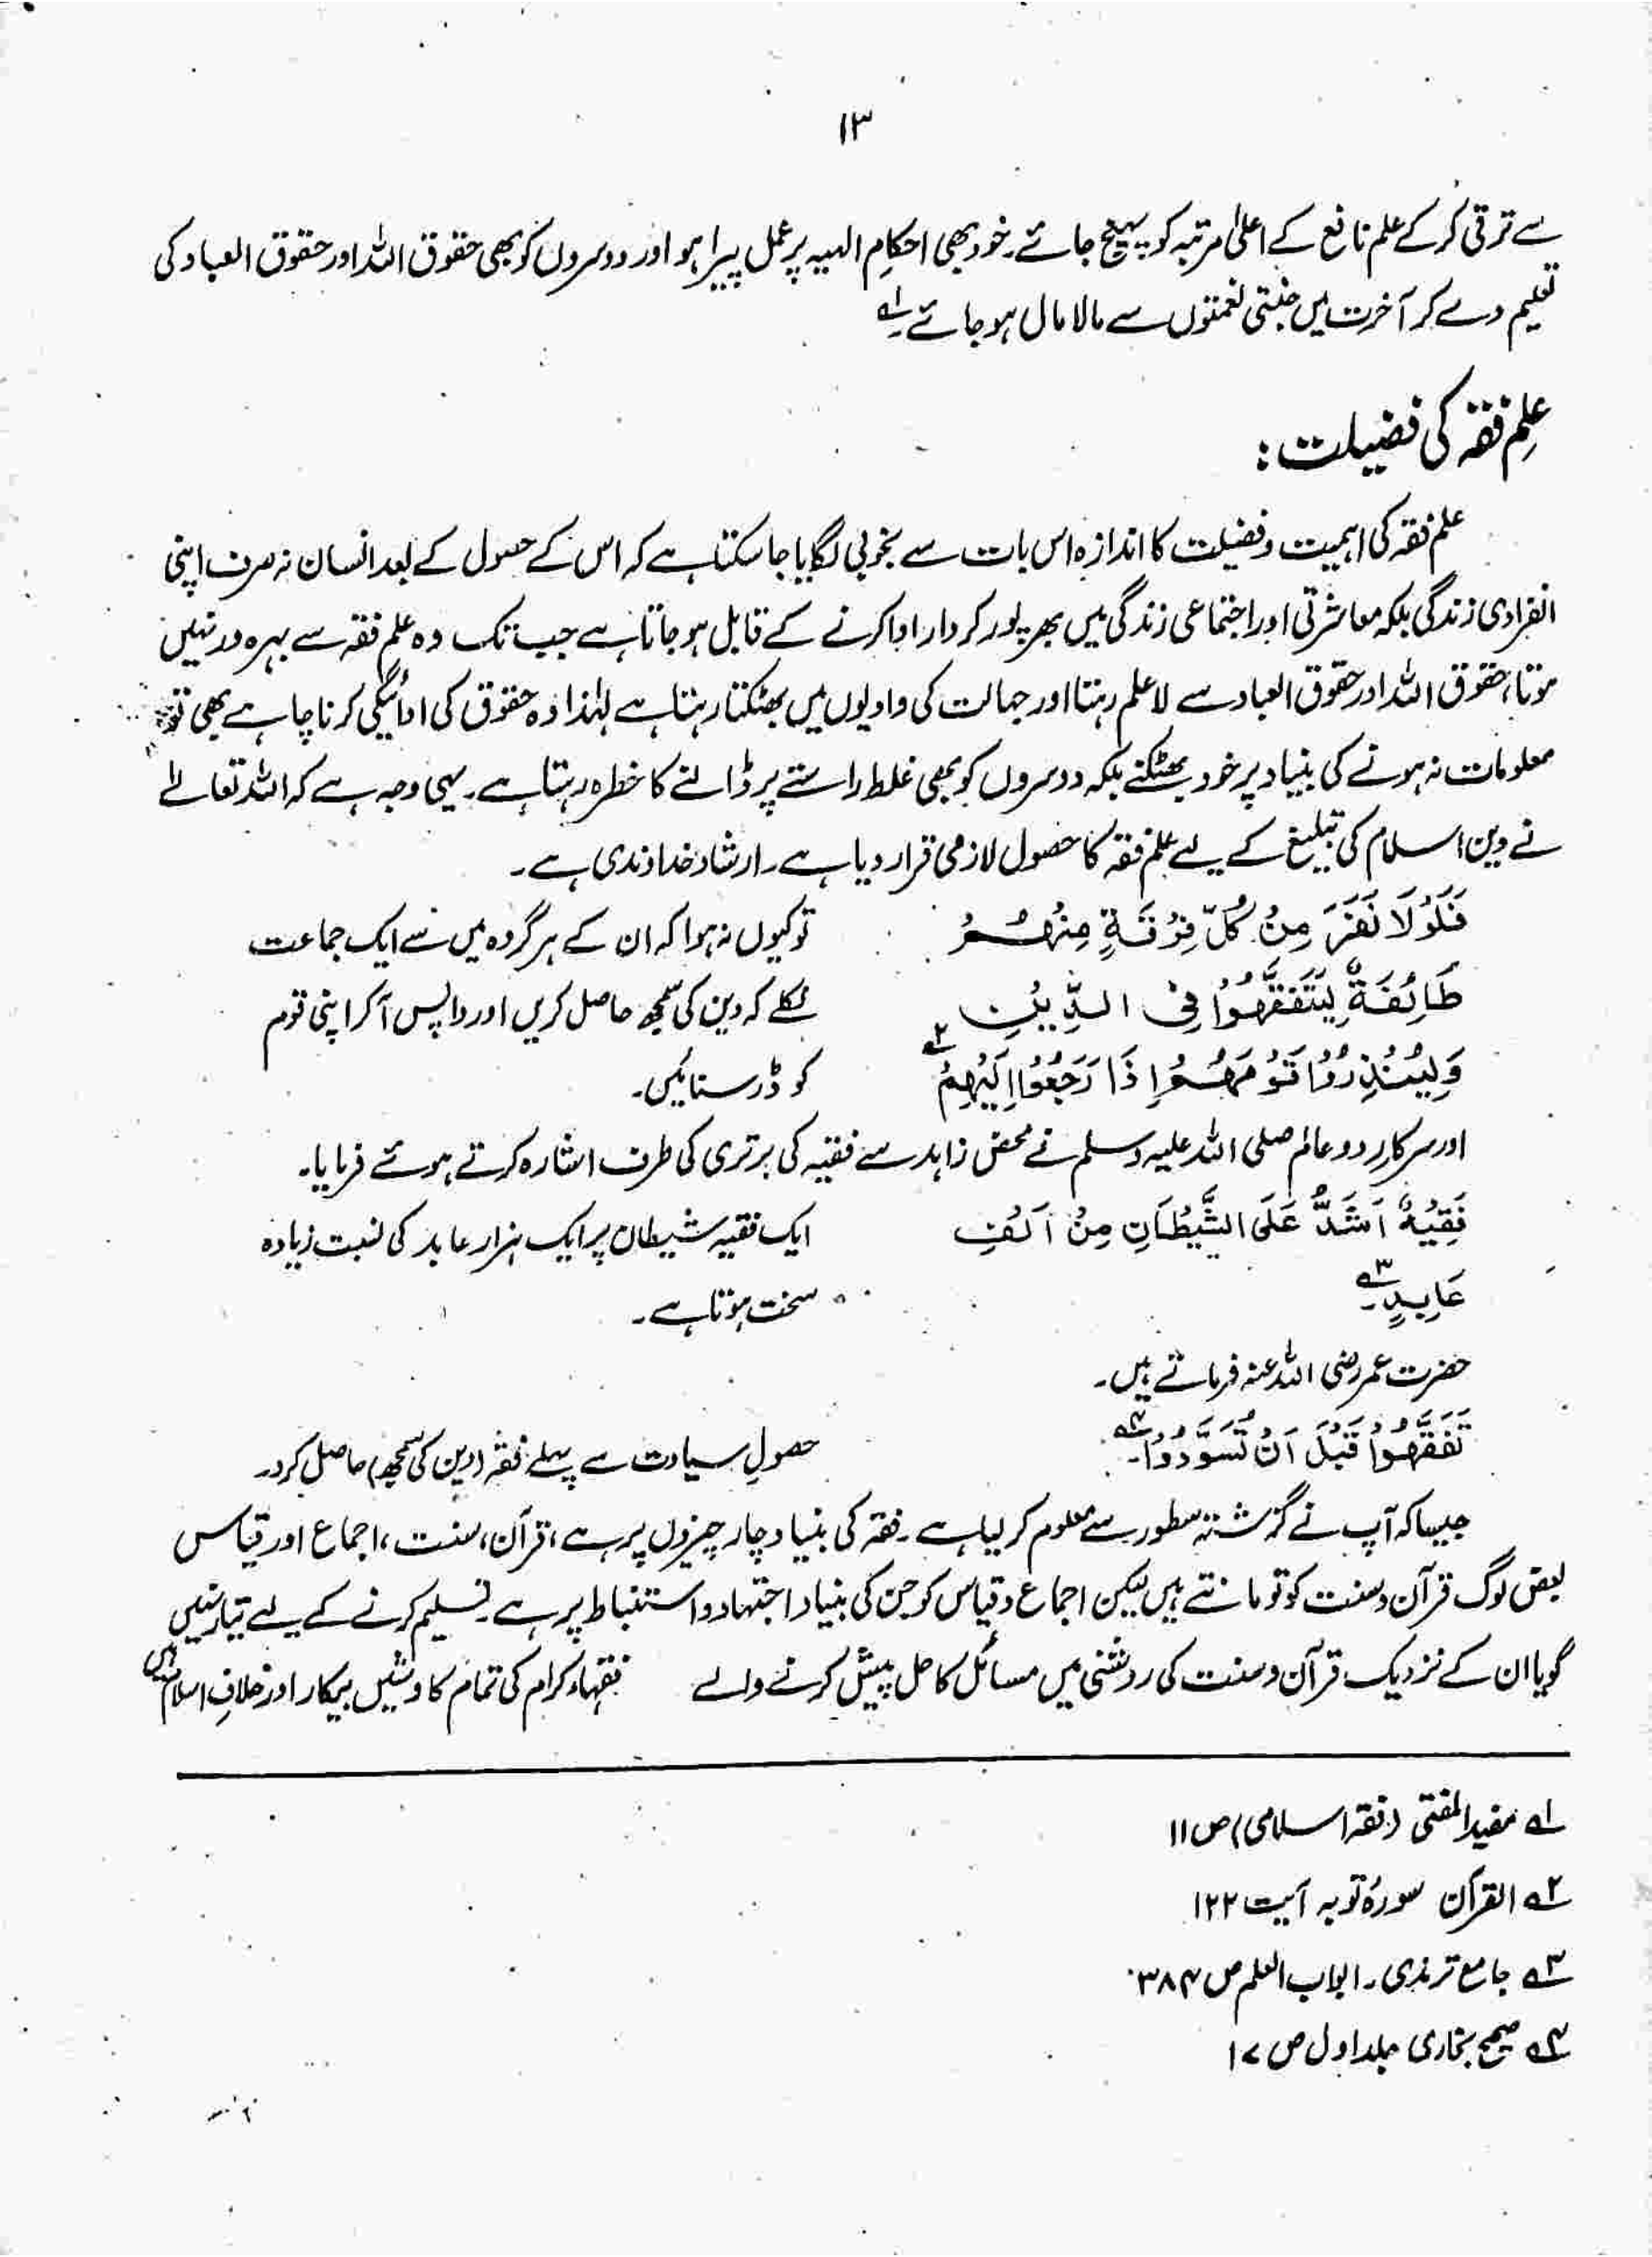 ۱۳
سے ترقی کر کے علم نافع کے اعلیٰ مرتبہ کو پہنچ جائے۔ خود بھی احکامِ الہیہ پر عمل پیرا ہو اور دوسروں کو بھی حقوق اللہ اور حقوق العباد کی
تعلیم دے کر آخرت میں جنتی نعمتوں سے مالا مال ہو جائے۔ ۱ھ
علِم فقہ کی فضیلت :
علم فقہ کی اہمیت و فضیلت کا اندازہ اس بات سے بخوبی لگایا جا سکتا ہے کہ اس کے حصول کے بعد انسان نہ صرف اپنی
انفرادی زندگی بلکہ معاشرتی اور اجتماعی زندگی میں بھرپور کردار ادا کرنے کے قابل ہو جاتا ہے جب تک وہ علم فقہ سے بہرہ ور نہیں
ہوتا، حقوق اللہ اور حقوق العباد سے لاعلم رہتا اور جہالت کی وادیوں میں بھٹکتا رہتا ہے لہٰذا وہ حقوق کی ادائیگی کرنا چاہے بھی تو
معلومات نہ ہونے کی بنیاد پر خود بھٹکنے بلکہ دوسروں کو بھی غلط راستے پر ڈالنے کا خطرہ رہتا ہے۔ یہی وجہ ہے کہ اللہ تعالےٰ
نے دین اسلام کی تبلیغ کے لیے علم فقہ کا حصول لازمی قرار دیا ہے۔ ارشاد خداوندی ہے۔
فَلَوْلَا نَفَرَ مِنْ كُلِّ فِرْقَةٍ مِنْهُمْ تو کیوں نہ ہوا کہ ان کے ہر گروہ میں سے ایک جماعت
طَائِفَةٌ لِيَتَفَقَّهُوْا فِی الدِّيْنِ نکلے کہ دین کی سمجھ حاصل کریں اور واپس آکر اپنی قوم
وَلِيُنْذِرُوْا قَوْمَهُمْ اِذَا رَجَعُوْا اِلَيْهِمْ ۲ھ کو ڈر سنائیں۔
اور سرکارِ دو عالم صلی اللہ علیہ وسلم نے محض زاہد سے فقیہ کی برتری کی طرف اشارہ کرتے ہوئے فرمایا۔
فَقِيْهٌ اَشَدُّ عَلَی الشَّيْطَانِ مِنْ اَلْفِ ایک فقیہ شیطان پر ایک ہزار عابد کی نسبت زیادہ
عَابِدٍ۔ ۳ھ سخت ہوتا ہے۔
حضرت عمر رضی اللہ عنہ فرماتے ہیں۔
تَفَقَّهُوْا قَبْلَ اَنْ تُسَوَّدُوْا۔ ۴ھ حصولِ سیادت سے پہلے فقہ (دین کی سمجھ) حاصل کرو۔
جیسا کہ آپ نے گزشتہ سطور سے معلوم کر لیا ہے۔ فقہ کی بنیاد چار چیزوں پر ہے، قرآن، سنت، اجماع اور قیاس
بعض لوگ قرآن و سنت کو تو مانتے ہیں لیکن اجماع و قیاس کو جن کی بنیاد اجتہاد و استنباط پر ہے۔ تسلیم کرنے کے لیے تیار نہیں
گویا ان کے نزدیک قرآن و سنت کی روشنی میں مسائل کا حل پیش کرنے والے فقہاء کرام کی تمام کاوشیں بیکار اور خلافِ اسلام ہیں
۱ھ مفید المفتی (فقہ اسلامی) ص ۱۱
۲ھ القرآن سورۂ توبہ آیت ۱۲۲
۳ھ جامع ترمذی۔ ابواب العلم ص ۳۸۴
۴ھ صحیح بخاری جلد اول ص ۱۷